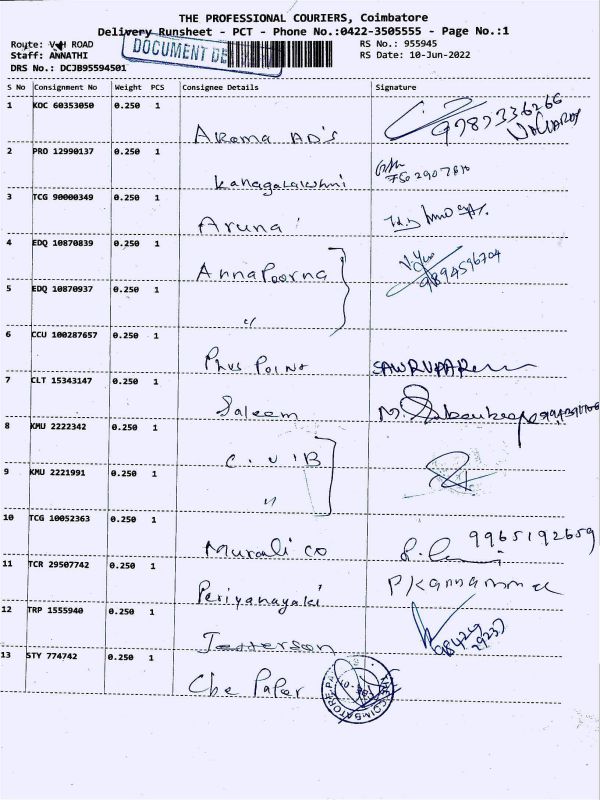 THE PROFESSIONAL COURIERS, Coimbatore
Delivery Runsheet - PCT - Phone No.:0422-3505555 - Page No.:1
Route: V.H ROAD
RS No.: 955945
Staff: ANNATHI
DOCUMENT DE
RS Date: 10-Jun-2022
DRS No.: DCJB95594501
S No Consignment No Weight PCS Consignee Details Signature
1 KOC 60353050 0.250 1
Aroma AD's
2 PRO 12990137 0.250 1
Kanagalakshmi
3 TCG 90000349 0.250 1
Aruna
4 EDQ 10870839 0.250 1
Annapoorna 9894596704
5 EDQ 10870937 0.250 1
"
6 CCU 100287657 0.250 1
Plus Point
7 CLT 15343147 0.250 1
Saleem
8 KMU 2222342 0.250 1
C.U.B
9 KMU 2221991 0.250 1
"
10 TCG 10052363 0.250 1
Murali co 9965192659
11 TCR 29507742 0.250 1
Periyanayaki P Kannamma
12 TRP 1555940 0.250 1
Jefferson
13 STY 774742 0.250 1
Che Paper